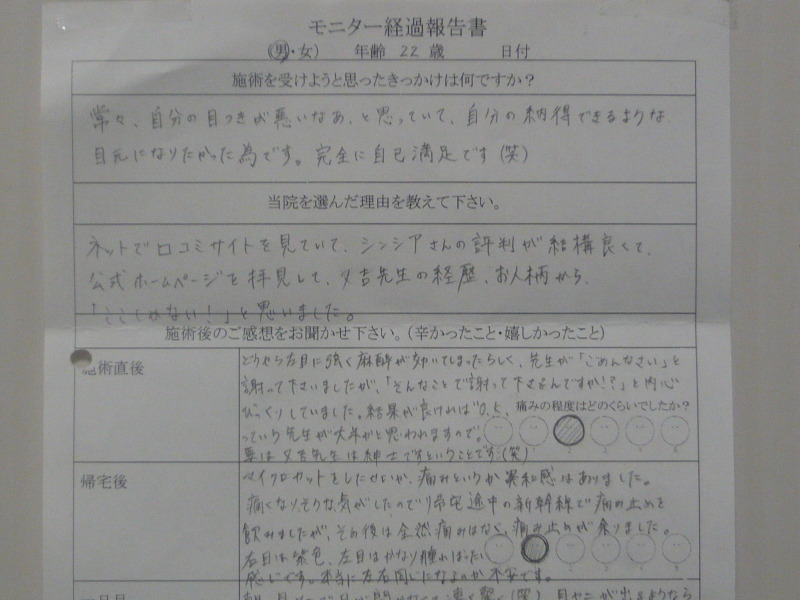 モニター経過報告書
(男・女) 年齢 22 歳 日付
施術を受けようと思ったきっかけは何ですか？
常々、自分の目つきが悪いなあ、と思っていて、自分の納得できるような
目元になりたかった為です。完全に自己満足です(笑)
当院を選んだ理由を教えて下さい。
ネットで口コミサイトを見ていて、シンシアさんの評判が結構良くて、
公式ホームページを拝見して、又吉先生の経歴、お人柄から、
「ここしかない！」と思いました。
施術後のご感想をお聞かせ下さい。(辛かったこと・嬉しかったこと)
施術直後
どうやら左目に強く麻酔が効いてしまったらしく、先生が「ごめんなさい」と
謝って下さいましたが、「そんなことで謝って下さるんですか!?」と内心
びっくりしていました。結果が良ければ
痛みの程度はどのくらいでしたか？
っていう先生が大半かと思われますので。
要は又吉先生は紳士ですということです(笑)
帰宅後
マイクロカットをしたせいか、痛みというか異和感はありました。
痛くなりそうな気がしたので帰宅途中の新幹線で痛み止めを
飲みましたが、その後は全然痛みはなく、痛み止めが余りました。
右目は紫色、左目はかなり腫れぼったい
感じです。本当に左右同じになるのか不安です。
一日目